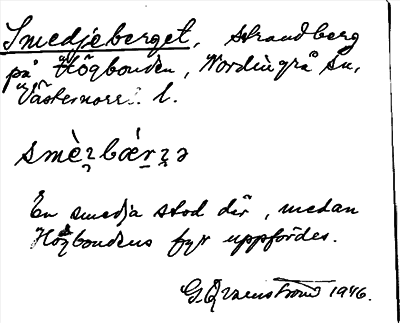 Smedjeberget, strandberg
på Högbonden, Nordingrå sn,
Västernorrl. l.
smèʒ̣bǽrʒ̣ə
En smedja stod där, medan
Högbondens fyr uppfördes.
G. Örnenstrand 1946.